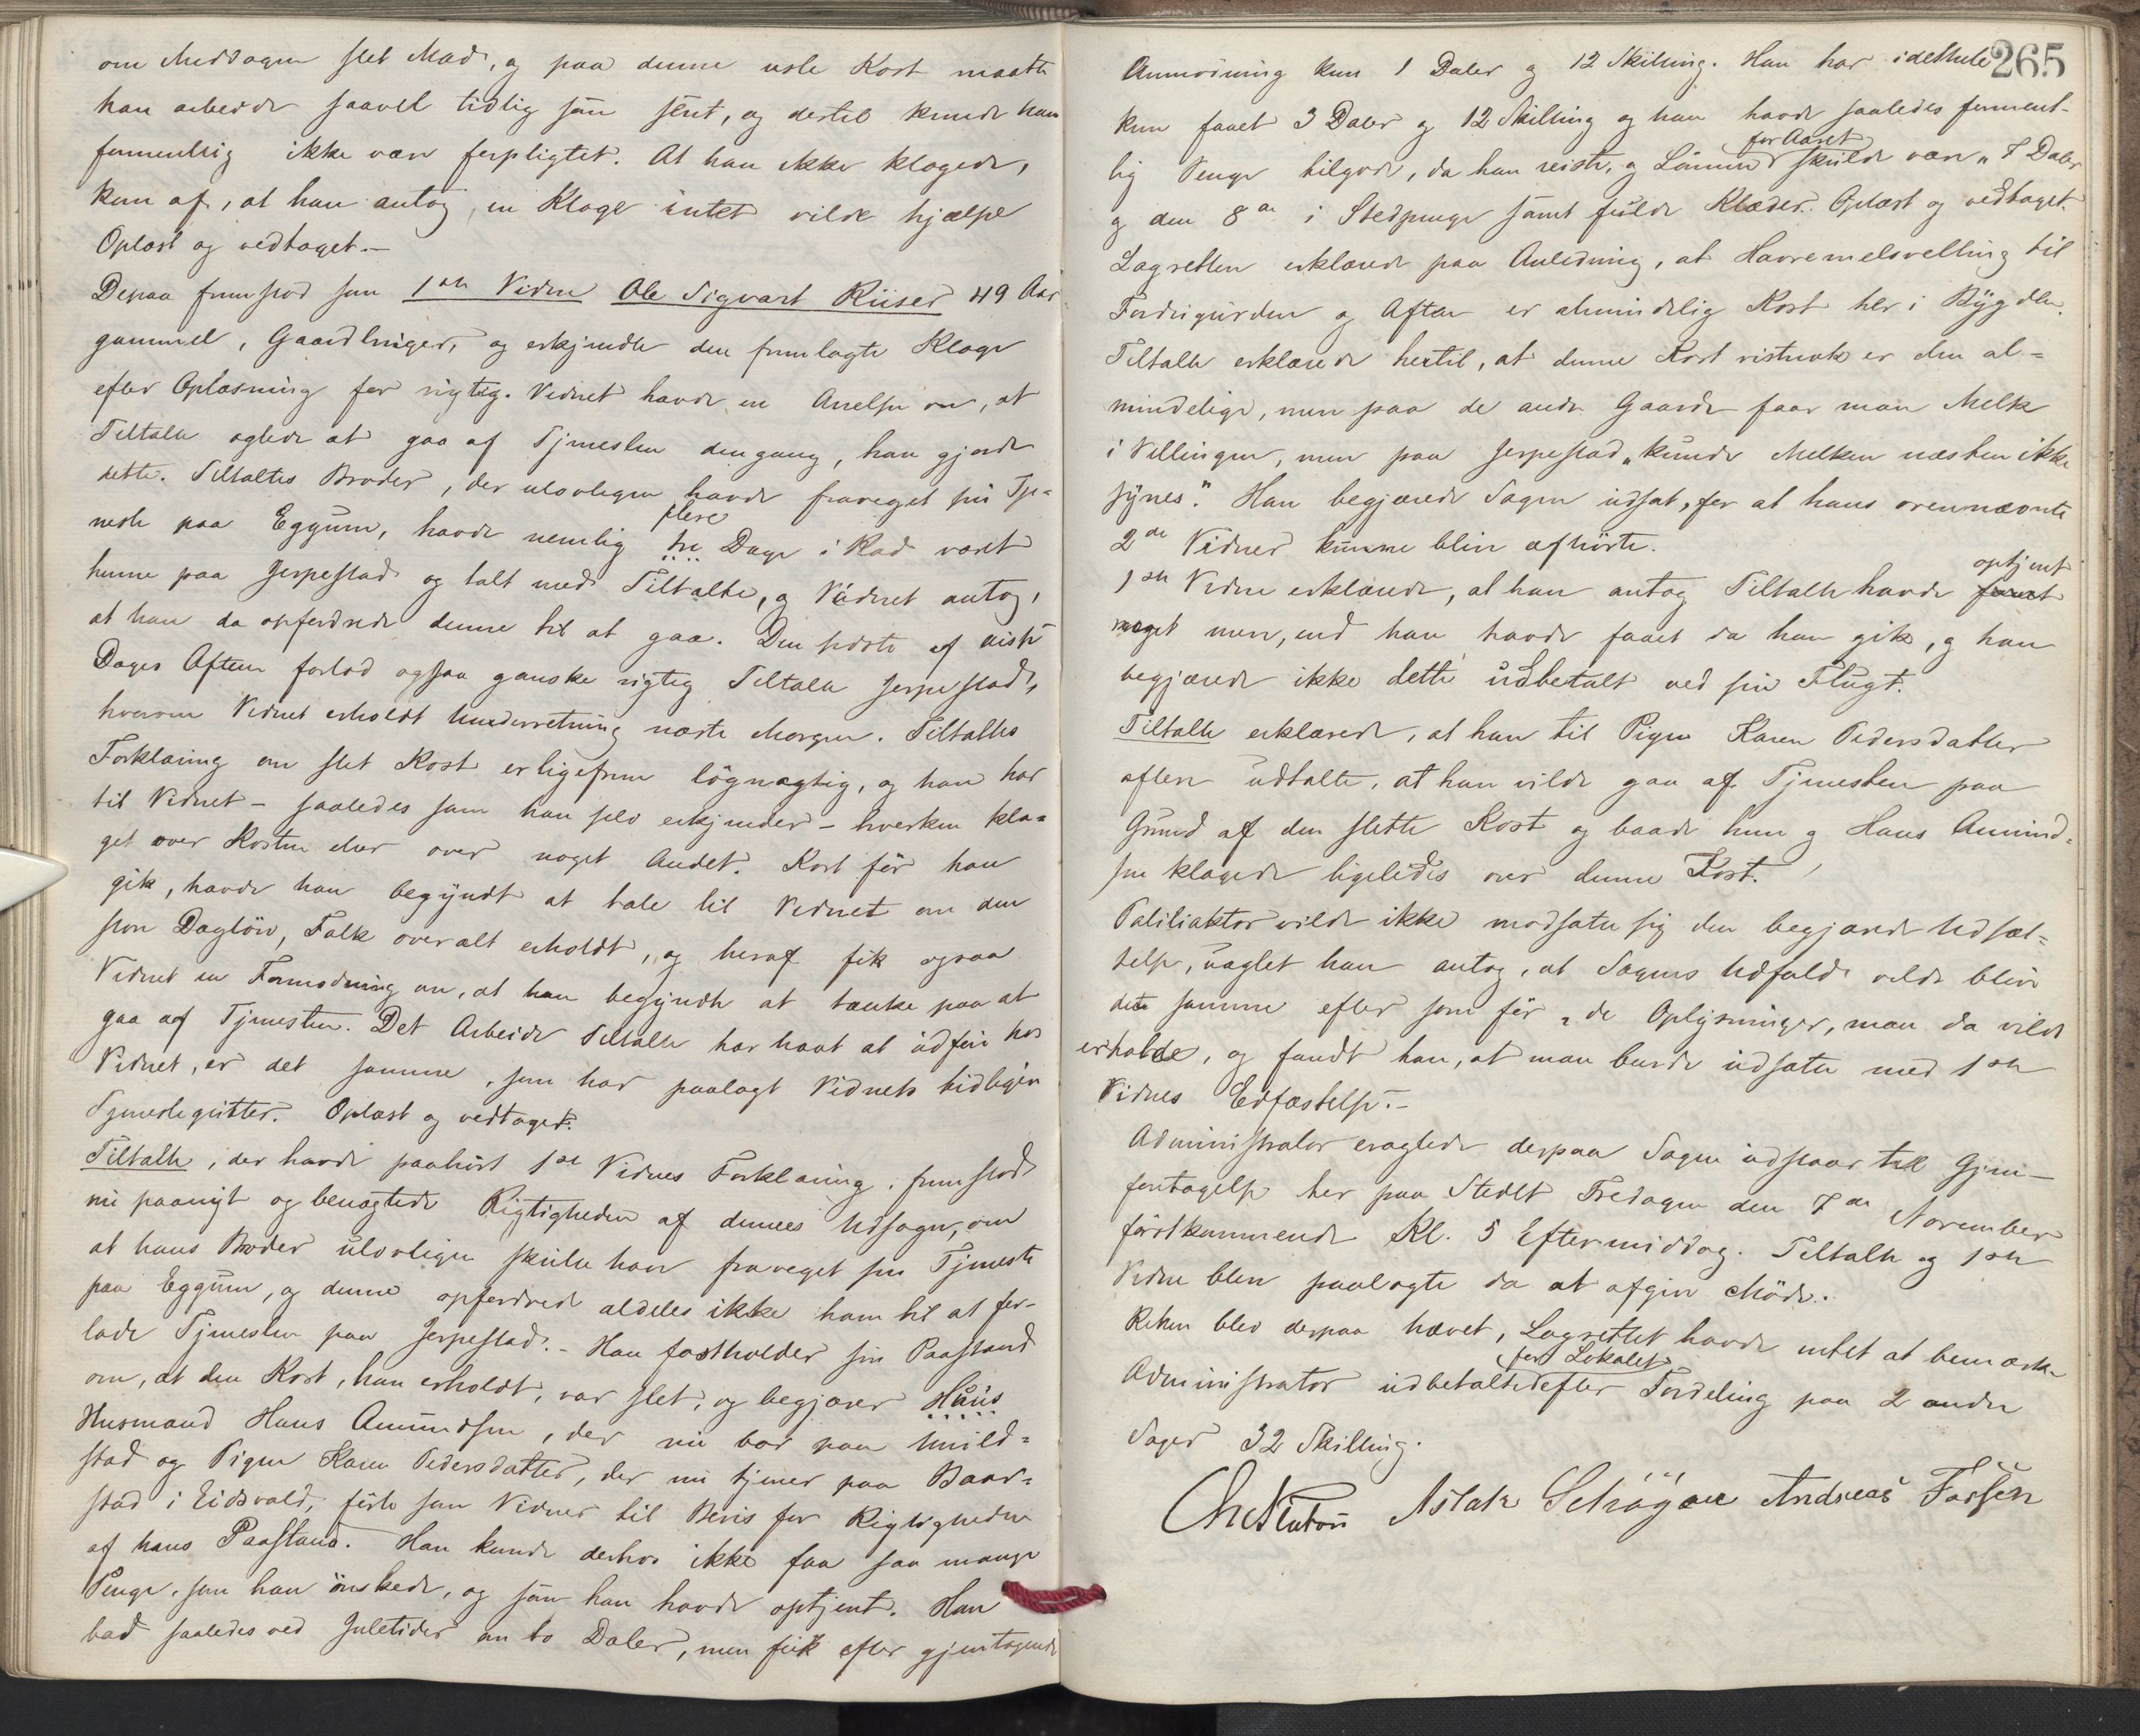 om Middagen slet Mad, og paa denne usle Kost maatte
han arbeide saavel tidlig som sent, og dertil kunde han
formentlig ikke være forpligtet. At han ikke klagede,
kom af, at han antog, en Klage intet vilde hjælpe
Oplæst og vedtaget.—
Depaa fremstod som 1ste Vidne Ole Sigvart Riiser 49 Aar
gammel, Gaardbruger, og erkjendte den fremlagte Klage
efter Oplæsning for rigtig. Vidnet havde en Anelse om, at
Tiltalte agtede at gaa af Tjenesten dengang, han gjorde
dette. Tiltaltes Broder, der ulovligen havde fraveget sin Tje=
neste paa Eggum, havde nemlig tre flere Dage i Rad været
henne paa Jerpestad og talt med Tiltalte, og Vidnet antog,
at han da opfordrede denne til at gaa. Den sidste af disse
Dages Aften forlod ogsaa ganske rigtig Tiltalte Jerpestad,
hvorom Vidnet erholdt Underretning næste Morgen. Tiltaltes
Forklaring om slet Kost er ligefrem løgnagtig, og han har
til Vidnet – saaledes som han selv erkjender – hverken kla=
get over Kosten eller over noget Andet. Kort før han
gik, havde han begyndt at tale til Vidnet om den
store Dagløn, Folk overalt erholdt, og heraf fik ogsaa
Vidnet en Formodning om, at han begyndte at tænke paa at
gaa af Tjenesten. Det Arbeide Tiltalte har havt at udføre hos
Vidnet, er det samme, som har paalagt Vidnets tidligere
Tjenestegutter. Oplæst og vedtaget.
Tiltalte, der havde paahørt 1ste Vidnes Forklaring, fremstod
nu paanyt og benægtede Rigtigheden af dennes Udsagn, om
at hans Broder ulovligen skulde have fraveget sin Tjeneste
paa Eggum, og denne opfordrede aldeles ikke ham til at for-
lade Tjenesten paa Jerpestad.– Han fastholder sin Paastand
om, at den Kost, han erholdt, var slet, og begjærer Hans
Husmand Hans Amundsen, der nu bor paa
stad og Pigen Karen Pedersdatter, der nu tjener paa Baar=
stad i Eidsvold, førte som Vidner til Bevis for Rigtigheden
af hans Paastand. Han kunde derhos ikke faa saa mange
Penge, som han ønskede, og som han havde optjent. Han
bad saaledes ved Juletider om to Daler, men fik efter gjentagende
265
Anmodning kun 1 Daler og 12 Skilling. Han har idethele
kun faaet 3 Daler og 12 Skilling og han havde saaledes forment-
lig Penge tilgode, da han reiste, og Lønnen for Aaret skulde være „7 Daler
og den 8de i Stedpenge samt fulde Klæder. Oplæst og vedtaget.
Lagretten erklærede paa Anledning, at Havremelsvelling til
Fordugurden og Aften er almindelig Kost her i Bygden.
Tiltalte erklærede hertil, at denne Kost vistnok er den al=
mindelige, men paa de andre Gaarde faar man Melk
i Vellingen, men paa Jerpestad „kunde Melken næsten ikke
synes". Han begjærede Sagen udsat, for at hans ovennævnte
2de Vidner kunne blive afhørte.
1ste Vidne erklærede, at han antog Tiltalte havde faaet optjent
noget mere, end han havde faaet da han gik, og han
begjærede ikke dette udbetalt ved sin Flugt.
Tiltalte erklærede, at han til Pigen Karen Pedersdatter
oftere udtalte, at han vilde gaa af Tjenesten paa
Grund af den slette Kost og baade hun og Hans Amund=
sen klagede ligeledes over denne Kost.
Politiaktor vilde ikke modsætte sig den begjærede Udsæt=
telse, uagtet han antog, at Sagens Udfald vilde blive
det samme efter som før de Oplysninger, man da vilde
erholde, og fandt han, at man burde udsætte med 1ste
Vidnes Edfæstelse.–
Administrator eragtede derpaa Sagen udstaar til Gjen—
foretagelse her paa Stedet Fredagen den 7de November
førstkommende Kl. 5 Eftermiddag. Tiltalte og 1ste
Vidne blev paalagte da at afgive Møde.
Retten blev derpaa hævet, Lagrettet havde intet at bemærke
Administrator udbetalte for Lokalet efter Fordeling paa 2 andre
Sager 32 Skilling.
Aslak Andreas